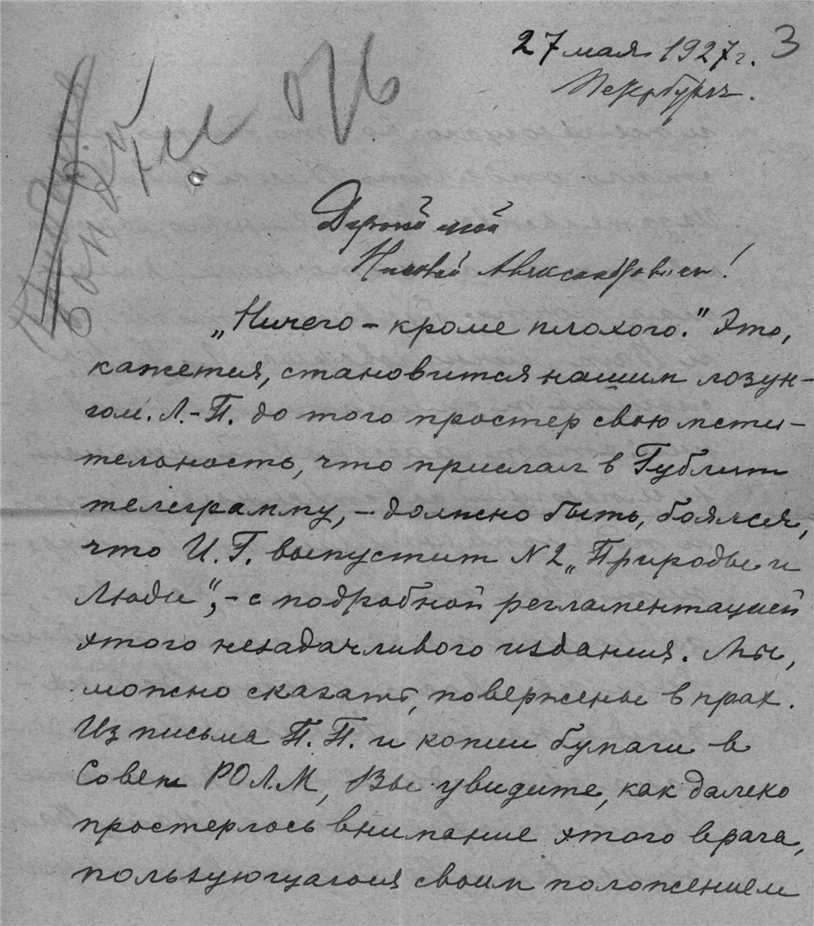 27 мая 1927 г. 3
Петербургъ.
Дорогой мой
Николай Александрович!
„Ничего – кроме плохого." Это,
кажется, становится нашим лозун-
гом. Л.-П. до того простер свою мсти-
тельность, что прислал в Гублит
телеграмму, – должно быть, боялся,
что И. Г. выпустит N 2 „Природы и
Люди", – с подробной регламентацией
этого незадачливого издания. Мы,
можно сказать, повержены в прах.
Из письма П. П. и копии бумаги в
Совет РОЛМ, Вы увидите, как далеко
простерлось внимание этого врага,
пользующагося своим положением